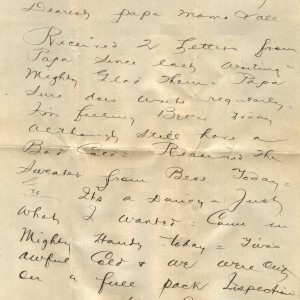 Dearest papa mama & all
Received 2 Letters from
Papa Since last writing =
Mighty Glad Them = Papa
Sure does write regularly =
I'm feeling Better Today
Although Still have a
Bad Cold = Received The
Sweater from Bess Today =
Its a Dandy = Just
What I wanted = Came in
Mighty Handy today = Twas
awful Cold & we were Out
On a full pack Inspection